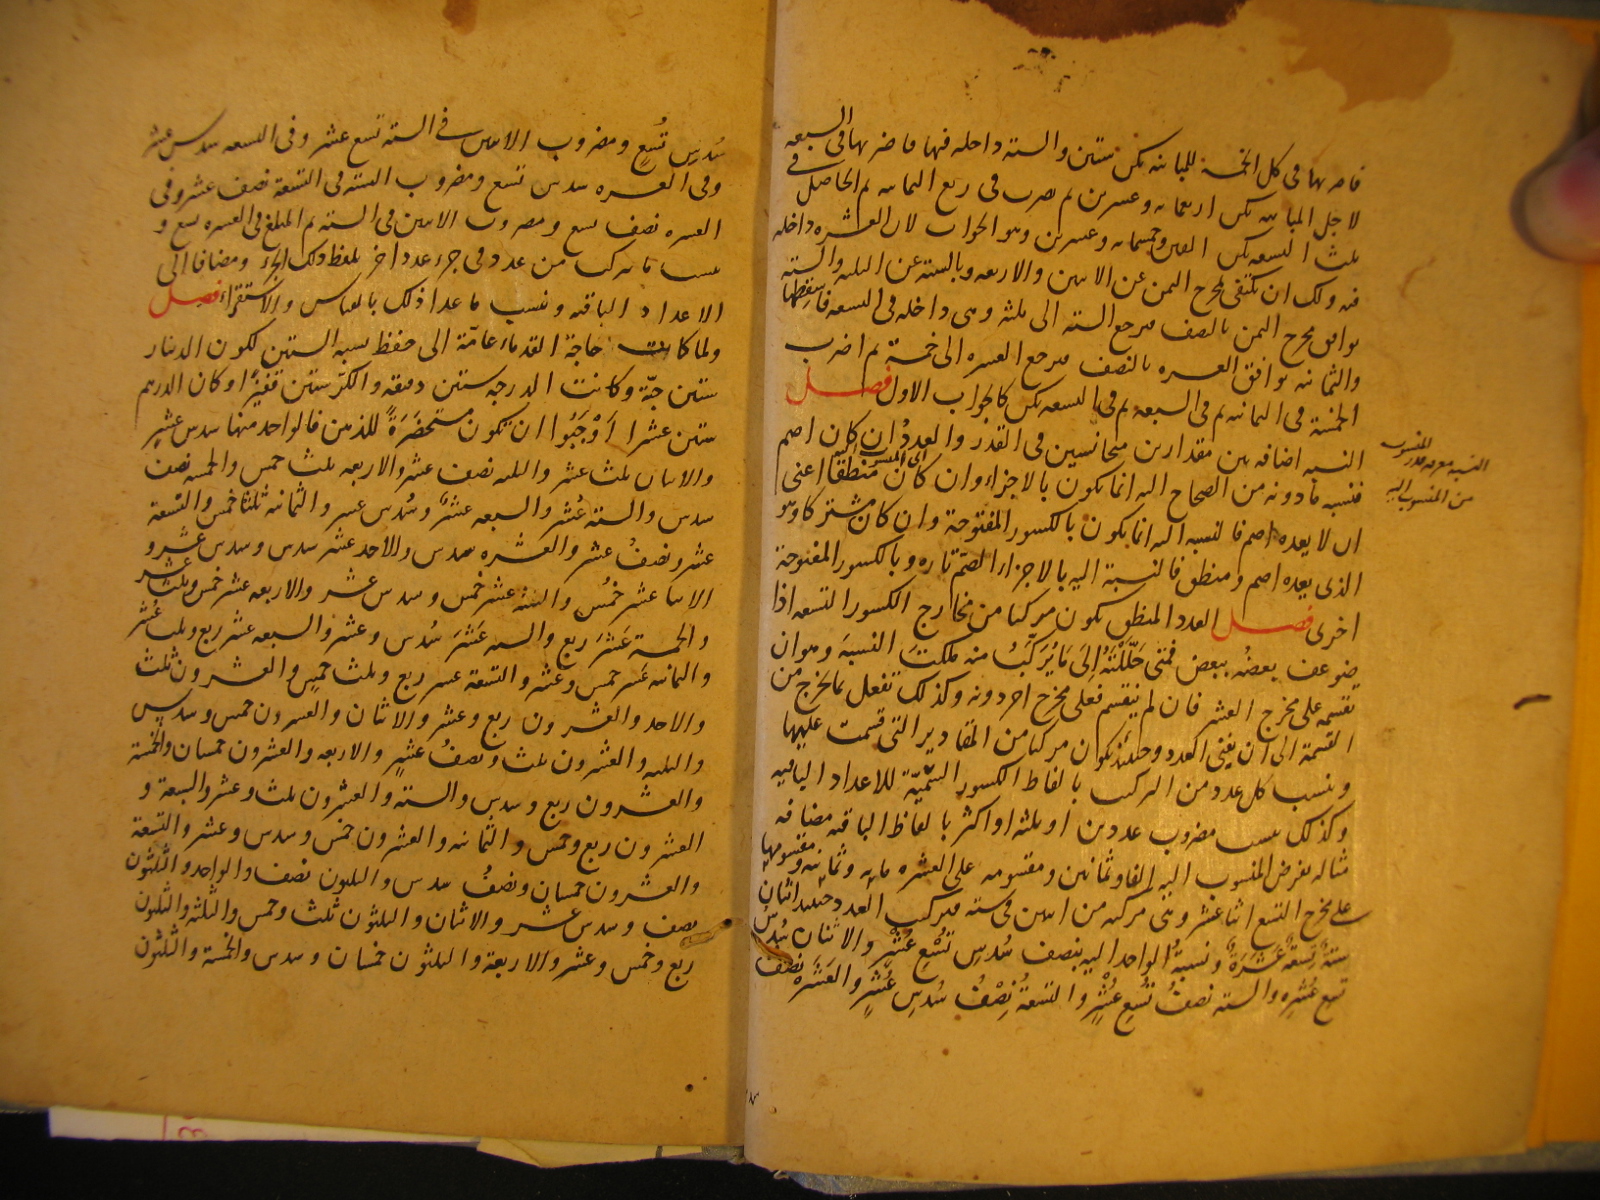 فاضربها في كل الخمسة للمباينة تكن ستين والستة داخلة فيها فاضربها في السبعة
لاجل المباينة تكن اربعمائة وعشرين ثم تضرب في ربع الثمانية ثم الحاصل في
ثلث التسعة تكن الفين وخمسمائة وعشرين وهو الجواب لان العشرة داخلة
فيه ولك ان تكتفي بمخرج الثمن عن الاثنين والاربعة وبالستة عن الثلثة والستة
توافق مخرج الثمن بالنصف فترجع الستة الى ثلثة وهي داخلة في التسعة فاسقطها
والثمانية توافق العشرة بالنصف فترجع العشرة الى خمسة ثم اضرب
الخمسة في الثمانية ثم في السبعة ثم في التسعة تكن كالجواب الاول فصل
النسبة اضافة بين مقدارين متجانسين في القدر والعدد ان كان اصم
فنسبة ما دونه من الصحاح اليه انما يكون بالاجزاء وان كان المنسوب اليه منطقا اعني
ان لا يعده اصم فالنسبة اليه انما يكون بالكسور المفتوحة وان كان مشتركا وهو
الذي يعده اصم ومنطق فالنسبة اليه بالاجزاء الصم تارة وبالكسور المفتوحة
اخرى فصل العدد المنطق يكون مركبا من مخارج الكسور التسعة اذا
ضوعف بعضه ببعض فمتى حللته الى ما يركب منه ملكت النسبة وهو ان
تقسمه على مخرج العشر فان لم ينقسم فعلى مخرج اخر دونه وكذلك تفعل بما يخرج من
القسمة الى ان يفنى العدد وحينئذ يكون مركبا من المقادير التي قسمت عليها
وينسب كل عدد من المركب بالفاظ الكسور السمية للاعداد الباقية
وكذلك ينسب مضروب عددين او ثلثة او اكثر بالفاظ الباقية مضافة
مثاله نفرض المنسوب اليه الفا وثمانين ومقسومه على العشرة مائة وثمانية ومقسومها
على مخرج التسع اثنا عشر وهي مركبة من اثنين في ستة فيركب العدد حينئذ اثنان
ستة تسعة عشرة ونسبة الواحد اليه بنصف سدس تسع عشر والاثنان سدس
تسع عشره والستة نصف تسع عشر والتسعة نصف سدس عشر والعشرة نصف
النسبة معرفة قدر المنسوب
من المنسوب اليه
سدس تسع ومضروب الاثنين في الستة تسع عشر وفي التسعة سدس عشر
وفي العشرة سدس تسع ومضروب الستة في التسعة نصف عشر وفي
العشرة نصف تسع ومضروب الاثنين في الستة ثم المبلغ في العشرة تسع و
ينسب ما تركب من عدد في جزء عدد اخر بلفظ ذلك الجزء ومضافا الى
الاعداد الباقية وينسب ما عدا ذلك بالقياس والاستقراء فصل
ولما كانت حاجة القدماء عامة الى حفظ نسبة الستين لكون الدينار
ستين حبة وكانت الدرجة ستين دقيقة والكر ستين قفيزا وكان الدرهم
ستين عشرا اوجبوا ان يكون مستحضرة للذهن فالواحد منها سدس عشر
والاثنان ثلث عشر والثلثة نصف عشر والاربعة ثلث خمس والخمسة نصف
سدس والستة عشر والسبعة عشر وسدس عشر والثمانية ثلثا خمس والتسعة
عشر ونصف عشر والعشرة سدس والاحد عشر سدس وسدس عشر و
الاثنا عشر خمس والثلثة عشر خمس وسدس عشر والاربعة عشر خمس وثلث عشر
والخمسة عشر ربع والستة عشر سدس وعشر والسبعة عشر ربع وثلث عشر
والثمانية عشر خمس وعشر والتسعة عشر ربع وثلث خمس والعشرون ثلث
والاحد والعشرون ربع وعشر والاثنان والعشرون خمس وسدس
والثلثة والعشرون ثلث ونصف عشر والاربعة والعشرون خمسان والخمسة
والعشرون ربع وسدس والستة والعشرون ثلث وعشر والسبعة و
العشرون ربع وخمس والثمانية والعشرون خمس وسدس وعشر والتسعة
والعشرون خمسان ونصف سدس والثلثون نصف والواحد والثلثون
نصف وسدس عشر والاثنان والثلثون ثلث وخمس والثلثة والثلثون
ربع وخمس وعشر والاربعة والثلثون خمسان وسدس والخمسة والثلثون